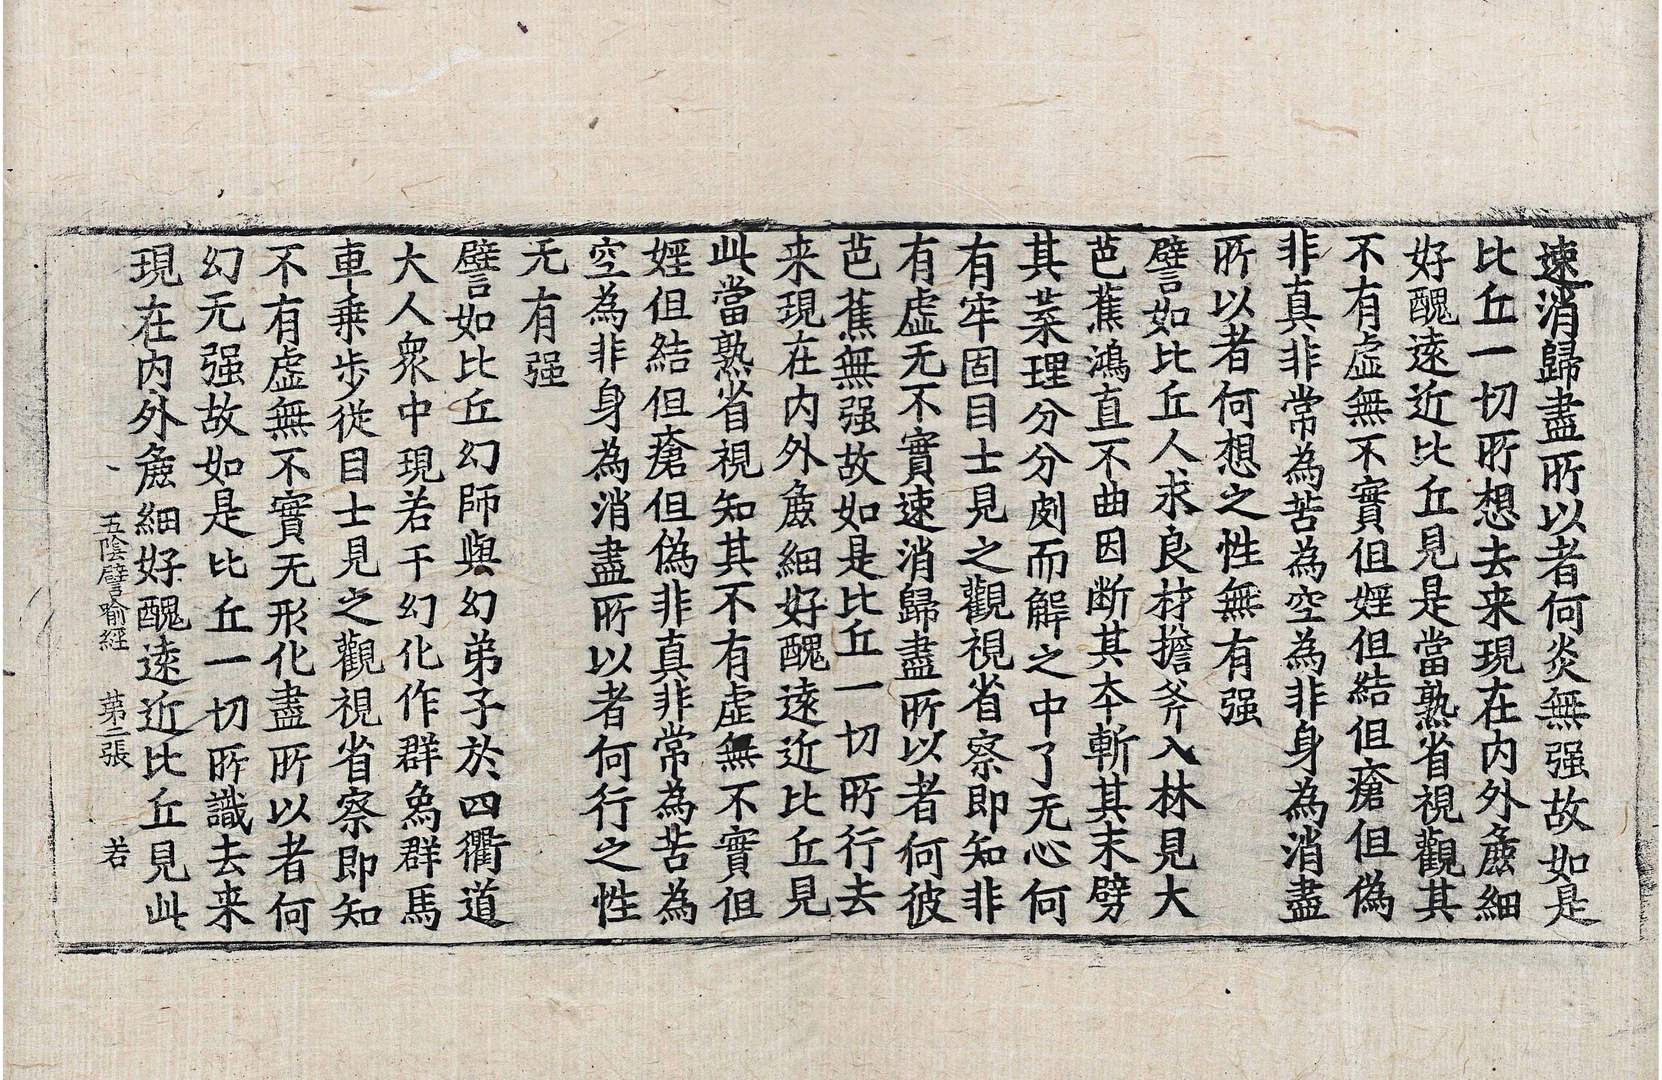 速消歸盡所以者何炎無强故如是
比丘一切所想去来現在内外麁細
好醜遠近比丘見是當熟省視觀其
不有虚無不實但婬但結但瘡但偽
非真非常為苦為空為非身為消盡
所以者何想之性無有强
譬如比丘人求良材擔斧入林見大
芭蕉鴻直不曲因断其本斬其末劈
其葉理分分剫而解之中了无心何
有牢固目士見之觀視省察即知非
有虚无不實速消歸盡所以者何彼
芭蕉無强故如是比丘一切所行去
来現在内外麁細好醜遠近比丘見
此當熟省視知其不有虚無不實但
婬但結但瘡但偽非真非常為苦為
空為非身為消盡所以者何行之性
无有强
譬如比丘幻師與幻弟子於四衢道
大人衆中現若干幻化作群象群馬
車乗步從目士見之觀視省察即知
不有虚無不實无形化盡所以者何
幻无强故如是比丘一切所識去来
現在内外麁細好醜遠近比丘見此
五陰譬喻經 苐二張 若